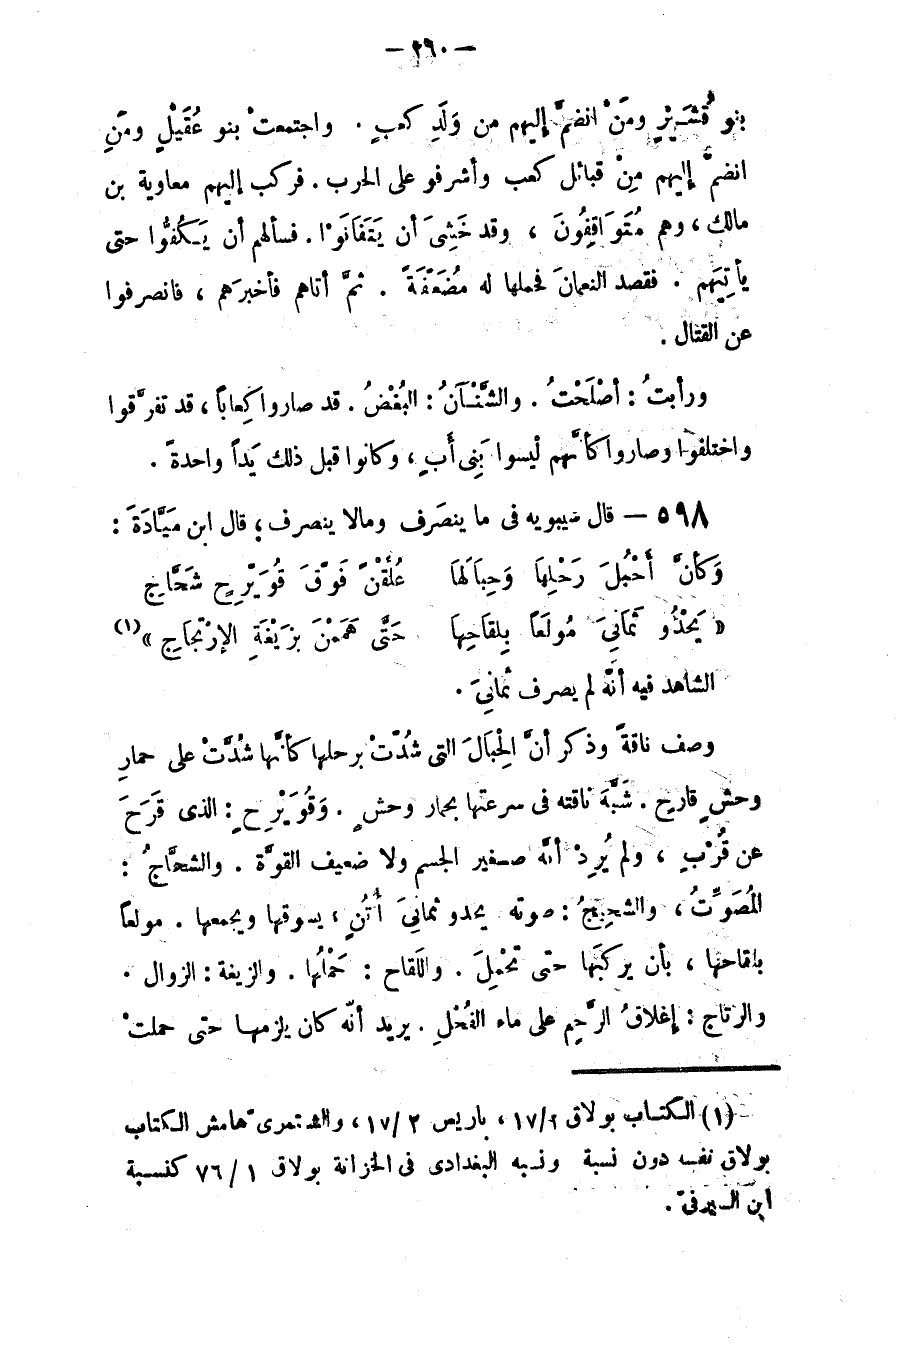 — ٢٦٠ —
بنو قُشَـيْرٍ ومَنْ انضمَّ إليهم من وَلَدِ كعبٍ . واجتمعتْ بنو عُقَيْلٍ ومَنِ
انضمَّ إليهم مِنْ قبائل كعب وأشرفو على الحرب . فركب إليهم معاوية بن
مالك ، وهم مُتَوَاقِفُونَ ، وقد خَشِىَ أن يَتَفَانَوْا . فسألهم أن يَـكُفُّوا حتى
يأتِيَهم . فقصد النعمانَ فحملها له مُضَعَّفَةً . ثمَّ أتاهم فأخبرَهم ، فانصرفوا
عن القتال .
ورأبتُ : أصْلَحْتُ . والشَّنْـآنُ : البُغْضُ . قد صاروا كِعاباً ، قد تفرَّقوا
واختلفوا وصاروا كأنَّهم ليسوا بَنِى أَبٍ ، وكانوا قبل ذلك يَداً واحدةً .
٥٩٨ — قال سيبويه فى ما ينصَرف ومالا ينصرف ؛ قال ابن مَيَّادَةَ :
وَكَأنَّ أَحْبُلَ رَحْلِهَا وَحِبَالَهَا عُلِّقْنَ فَوْقَ قُوَيْرِحٍ شَحَّاجِ
« يَحْدُو ثَمَانِىَ مُولَعاً بِلِقَاحِها حَتَّى هَمَمْنَ بزَيْغَةِ الإرْتَجاجِ » (١)
الشاهد فيه أنّه لم يصرف ثمانِىَ .
وصف ناقةً وذكر أنَّ الحِبَالَ التى شُدّتْ برحلها كأنَّها شُدَّتْ على حمارِ
وحشٍ قارح . شَبَّهَ ناقته فى سرعتها بحمار وحشٍ . وَقُوَيْرِحٍ : الذى قَرَحَ
عن قُرْبٍ ، ولم يُرِدْ أنّه صغير الجسم ولا ضعيف القوّة . والشحَّاجُ :
المُصَوِّتُ ، والشحِيجُ : صوته يحدو ثمانِىَ أُتُنٍ ، يسوقها ويجمعها . مولعاً
بلقاحها ، بأن يركبَها حتى تحمِلَ . واللَقاح : حَمْلُها . والزيغة : الزوال .
والرتاج : إغلاقُ الرَّحِم على ماء الفَحْلِ . يريد أنّه كان يلزمهـا حتى حملتْ
(١) الـكتـاب بولاق ١٧/٢ ، باريس ١٧/٢ ، والشنتمرى بهامش الـكتاب
بولاق نفسه دون نسبة ونسبه البغدادى فى الخزانة بولاق ٧٦/١ كنسـبة
ابن السيرفىّ .